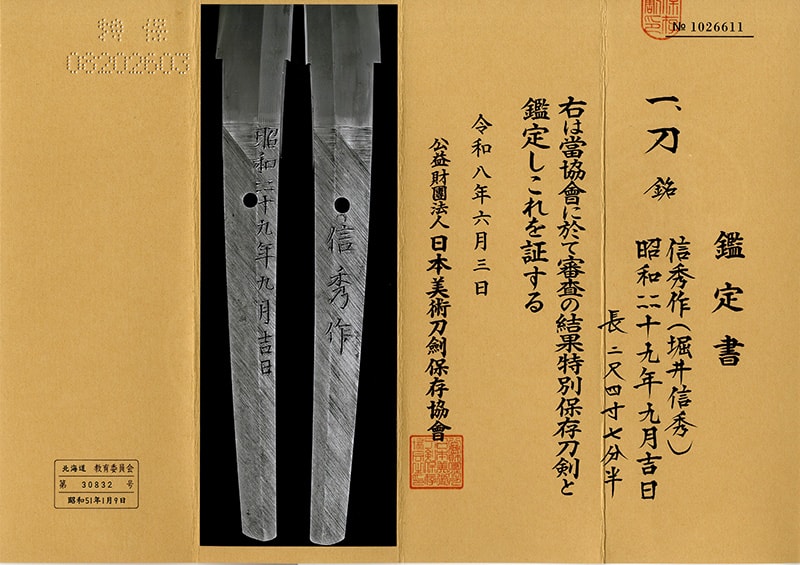 № 1026611
鑑定書
一、刀 銘
信秀作(堀井信秀)
昭和二二十九年九月吉日
長 二尺四寸七分半
右は當協會に於て審査の結果特別保存刀剣と
鑑定しこれを証する
令和八年六月三日
公益財團法人 日本美術刀劍保存協會
信秀作
昭和二二十九年九月吉日
特保
08202603
北海道 教育委員会
第 30832 号
昭和51年1月9日